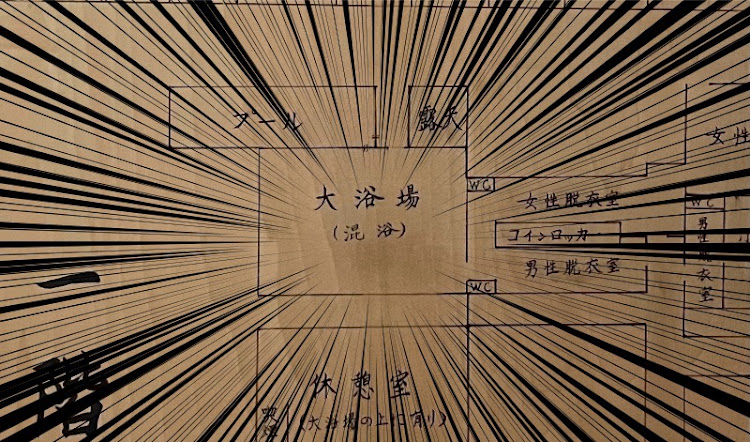 プール
露天
女性
WC
大浴場
(混浴)
女性脱衣室
コインロッカー
男性脱衣室
WC
男性脱衣室
WC
一階
休憩室
(大浴場の上に有り)
喫煙